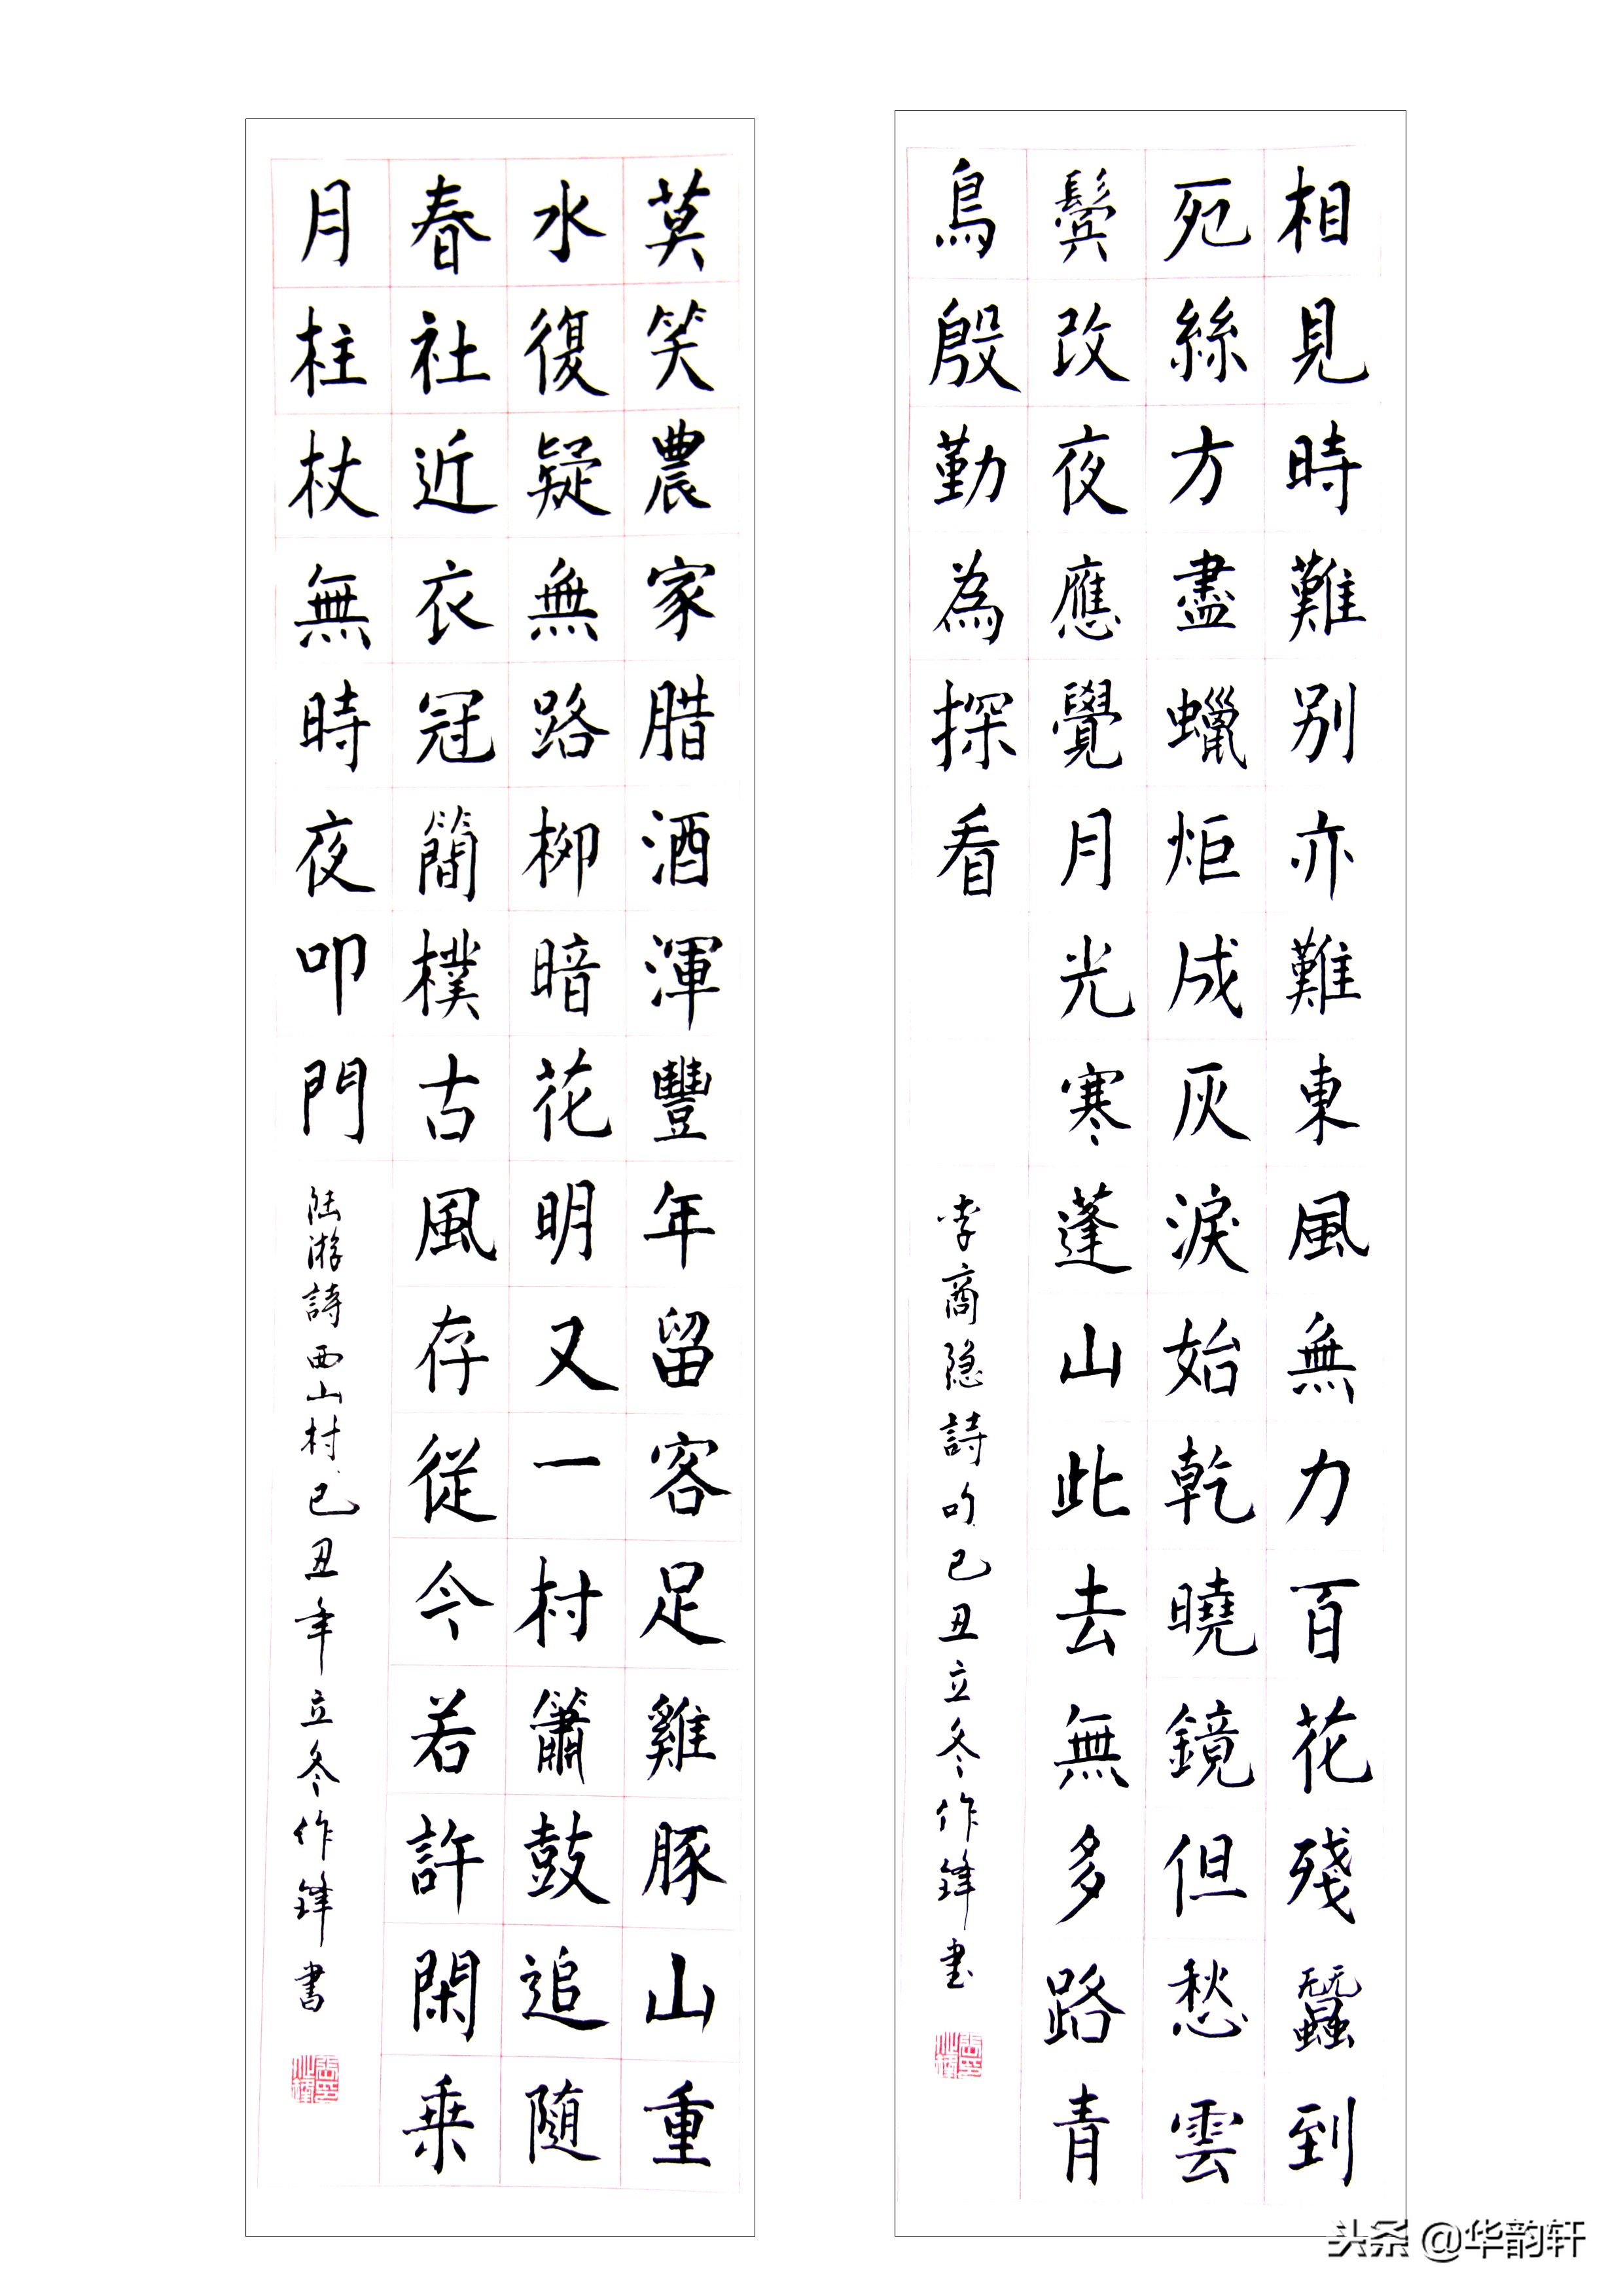 相見時難别亦難東風無力百花殘蠶到
死絲方盡蠟炬成灰淚始乾曉鏡但愁雲
鬢改夜應覺月光寒蓬山此去無多路青
鳥殷勤為探看
李商隐詩句己丑立冬作鋒書
莫笑農家腊酒渾豐年留客足雞豚山重
水復疑無路柳暗花明又一村簫鼓追隨
春社近衣冠簡樸古風存從今若許閑乗
月柱杖無時夜叩門
陸游詩西山村己丑年立冬作鋒書
头条 @华韵轩